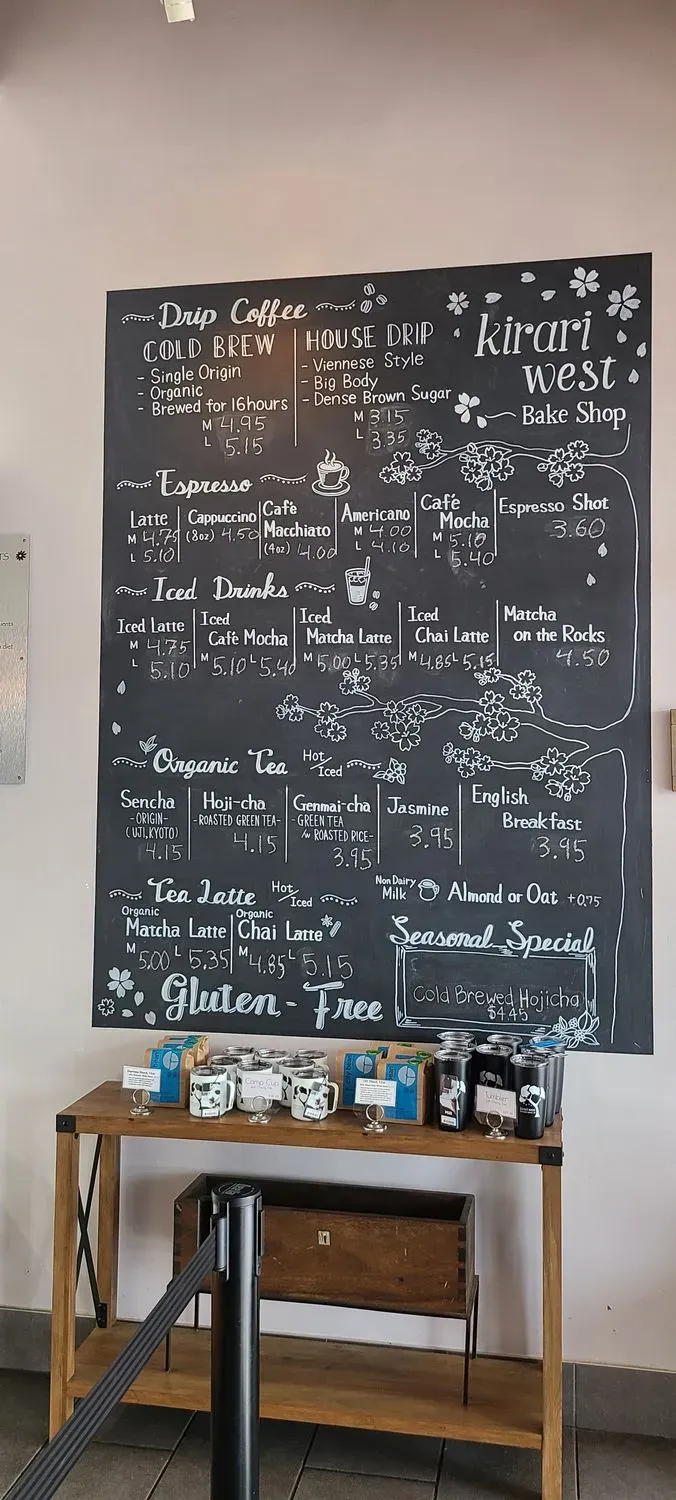 Drip Coffee
COLD BREW
- Single Origin
- Organic
- Brewed for 16hours
M 4.95
L 5.15
HOUSE DRIP
- Viennese Style
- Big Body
- Dense Brown Sugar
M 3.15
L 3.35
kirari
west
Bake Shop
Espresso
Latte
M 4.75
L 5.10
Cappuccino
(8oz) 4.50
Café
Macchiato
(4oz) 4.00
Americano
M 4.00
L 4.10
Café
Mocha
M 5.10
L 5.40
Espresso Shot
3.60
Iced Drinks
Iced Latte
M 4.75
L 5.10
Iced
Café Mocha
M 5.10 L 5.40
Iced
Matcha Latte
M 5.00 L 5.35
Iced
Chai Latte
M 4.85 L 5.15
Matcha
on the Rocks
4.50
Organic Tea
Hot/Iced
Sencha
-ORIGIN-
(UJI, KYOTO)
4.15
Hoji-cha
-ROASTED GREEN TEA-
4.15
Genmai-cha
-GREEN TEA
/w ROASTED RICE-
3.95
Jasmine
3.95
English
Breakfast
3.95
Tea Latte
Hot/Iced
Organic
Matcha Latte
M 5.00 L 5.35
Organic
Chai Latte
M 4.85 L 5.15
Non Dairy
Milk
Almond or Oat +0.75
Seasonal Special
Cold Brewed Hojicha
$4.45
Gluten-Free
Camp Cup
Tumbler